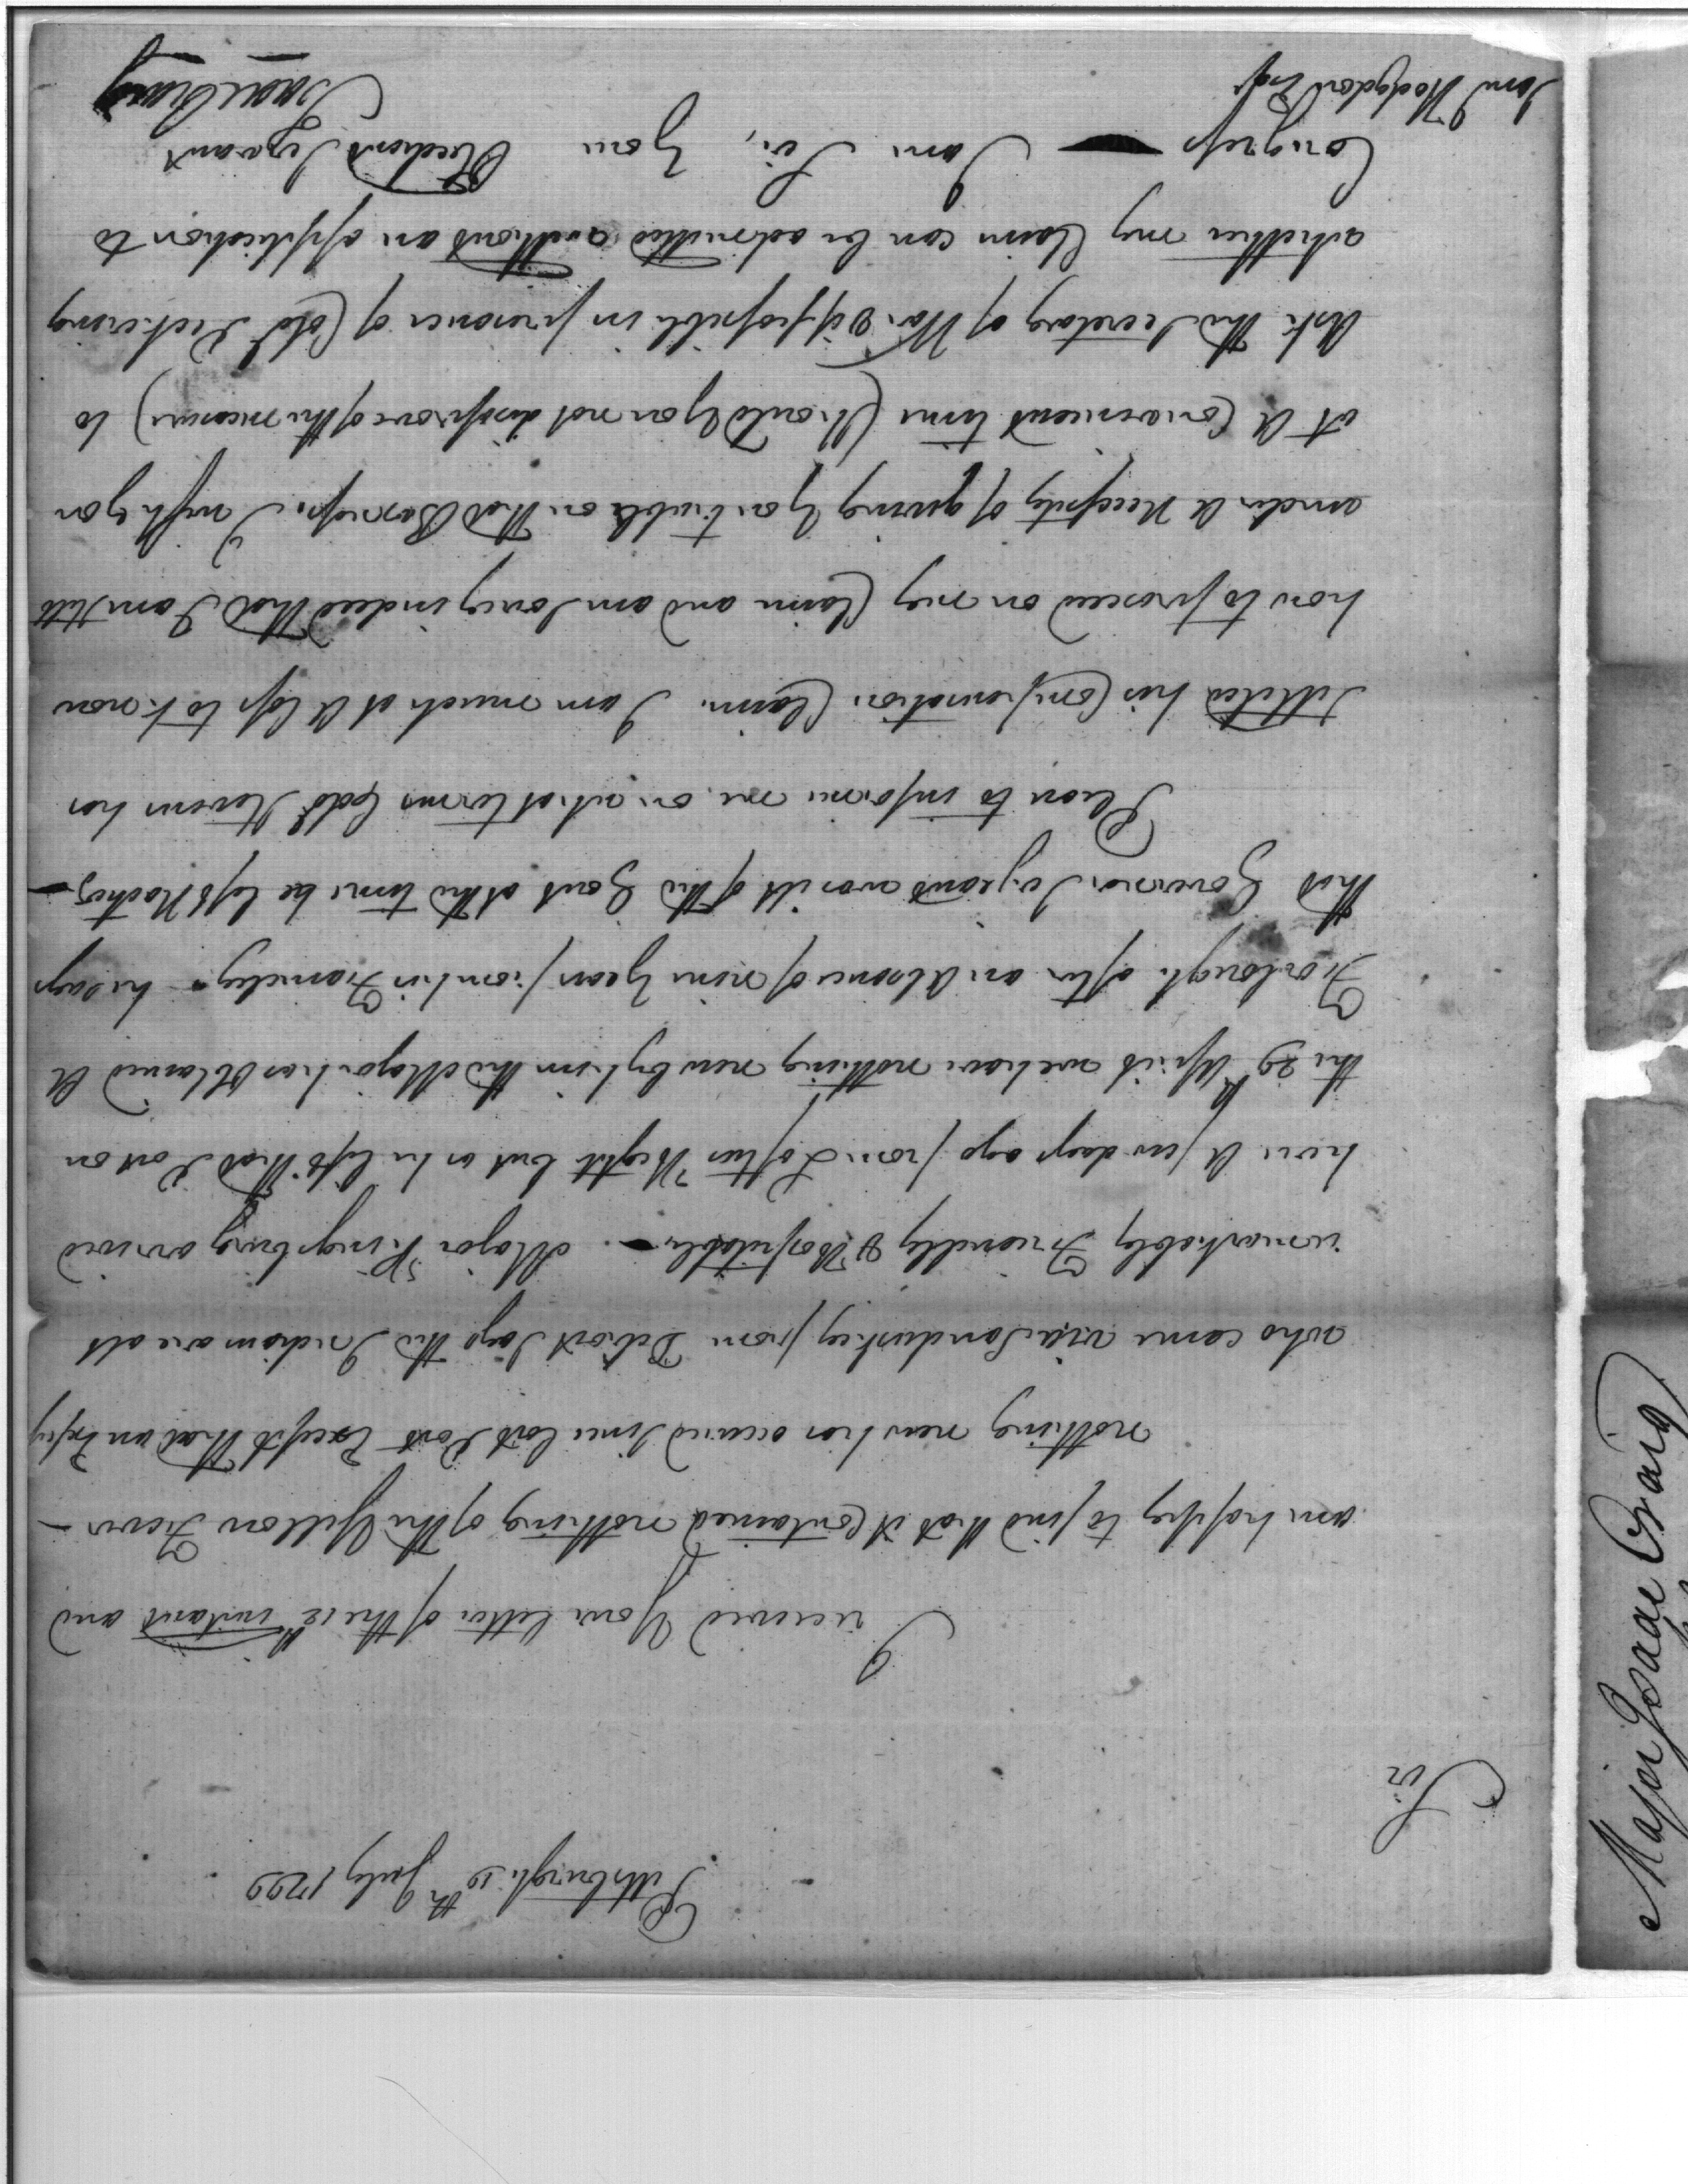 Pittsburgh 19th July 1799
Sir
I received Your letter of the 12th instant and
am happy to find that it Contained nothing of the Yellow Fever –
nothing new has occured Since last Post Except that an Express
who came via Sandusky from Detroit Says the Indians are all
remarkably Friendly & Hospitable – Major Kingsbury arrived
here A few days ago from Loftus Height but as he left that Post on
the 29th April we have nothing new by him the Major has Obtained A
Forlough after an Absence of nine Years from his Framely – he says
that Governor Sergeant was ill of the Gout at the time he left Natchez –
Please to informe me on what terms Colo. Stevens has
Settled his Compensation Claim. I am much at A loss to know
how to proceed on my Claim and am Sorry indeed that I am Still
under A Necessity of giving You trouble on that Business. I wish you
at A Convenient time (Should you not disapprove of the measure) to
Ask the Secretary of War if possible in presence of Colo. Pickering
whether my Claim can be admitted without an application to
Congress — I am Sir, Your Obedient Servant
Isaac Craig
Saml Hodgdon Esqr
Major Isaac Craig